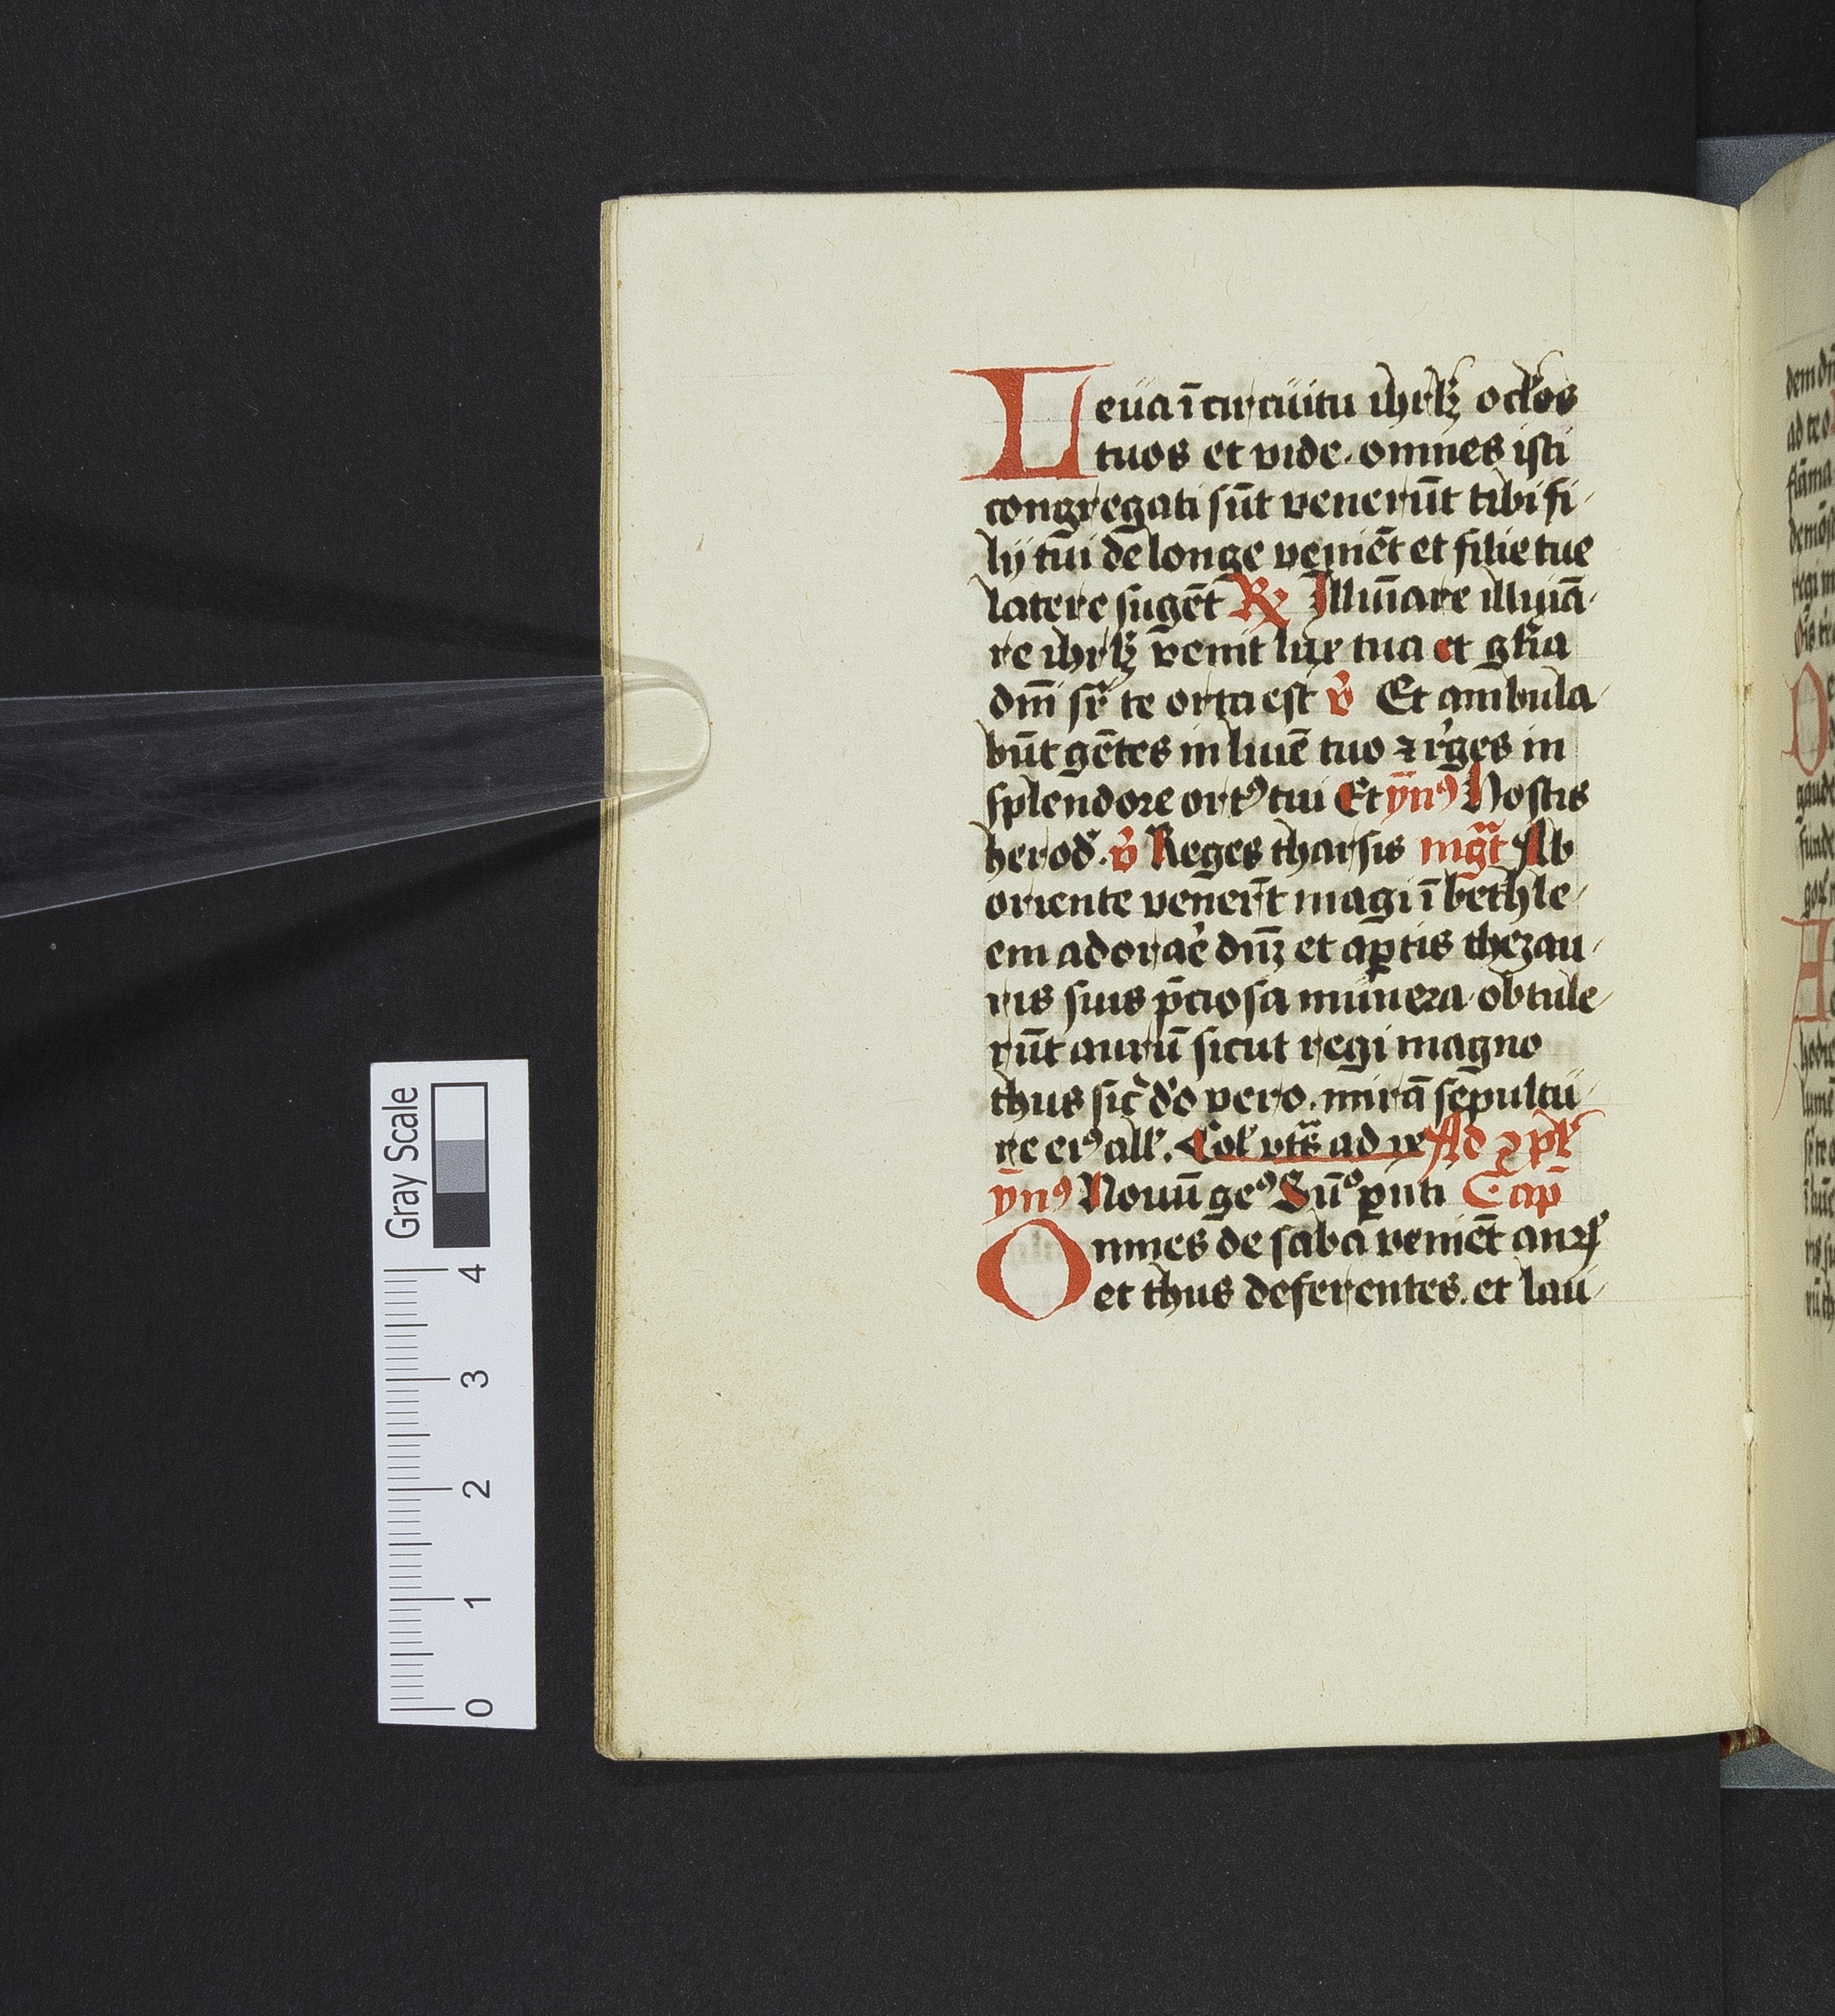 Leua ī circūitu ihrłꝫ ocłos
tuos et vide. omnes isti
congregati sūt venerūt tibi fi
lij tui de longe veniēt et filie tue
latere sugēt ℟ Illuīare illuīa
re ihrłꝫ venit lux tua et głia
dn̄i sr̄ te orta est v̄ Et ambula
būt gētes in luīe tuo ⁊ rͤges in
splendore ortꝰ tui Et ym̄nꝰ Hostis
herod̄. v̄ Reges tharsis mḡt Ab
oriente venerūt magi ī bethle
em adorar̄e dn̄ꝫ et aꝑtis thezau
ris suis p̄ciosa munera obtule
rūt aurū sicut regi magno
thus sic̄ dͦo vero. mirā sepultu
re eiꝰ all'. Col' vts̄ ad ix Ad ꝯpł
ym̄nꝰ Nouū geꝰ Sūͦ ꝑuti Cap̄
Omnes de saba veniēt aurꝫ
et thus deferentes. et lau
Gray Scale
4
3
2
1
0